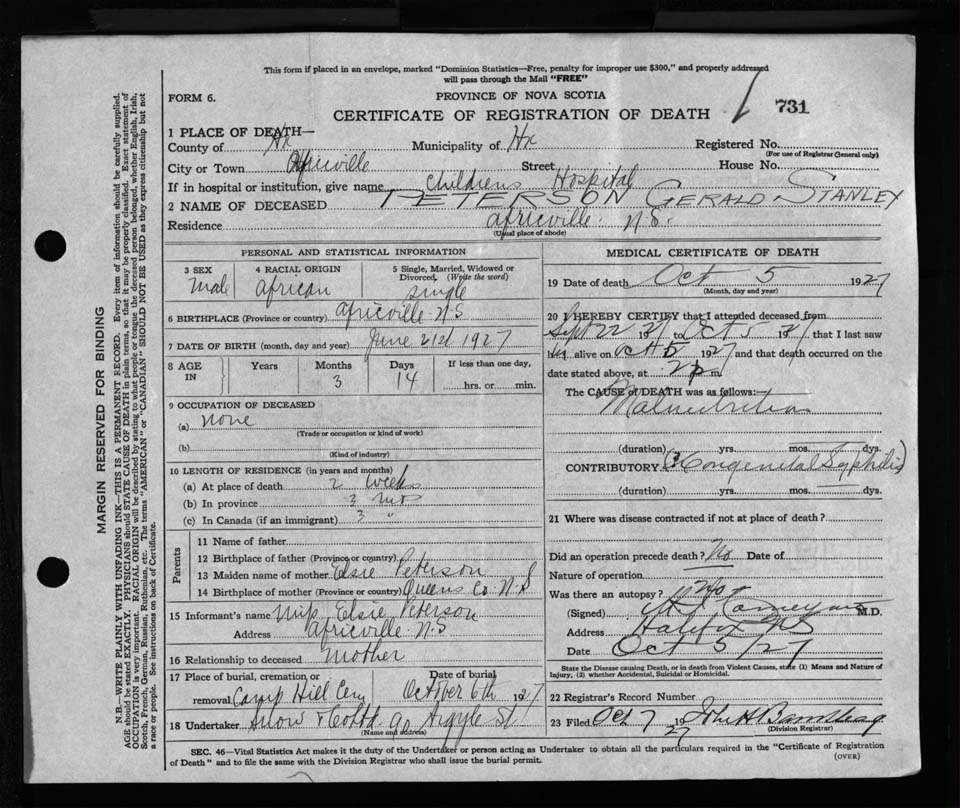 This form if placed in an envelope, marked "Dominion Statistics—Free, penalty for improper use $300," and properly addressed
will pass through the Mail "FREE"
FORM 6.
PROVINCE OF NOVA SCOTIA
CERTIFICATE OF REGISTRATION OF DEATH
731
1 PLACE OF DEATH—
County of Hx Municipality of Hx Registered No.
(For use of Registrar General only)
City or Town Africville Street House No.
If in hospital or institution, give name Childrens Hospital
2 NAME OF DECEASED PETERSON GERALD STANLEY
Residence Africville. N.S.
(Usual place of abode)
PERSONAL AND STATISTICAL INFORMATION
3 SEX
male
4 RACIAL ORIGIN
African
5 Single, Married, Widowed or
Divorced (Write the word)
single
6 BIRTHPLACE (Province or country) Africville N-S
7 DATE OF BIRTH (month, day and year) June 21st 1927
8 AGE IN
Years
Months
3
Days
14
If less than one day,
hrs. or min.
9 OCCUPATION OF DECEASED
(a) none
(Trade or occupation or kind of work)
(b)
(Kind of industry)
10 LENGTH OF RESIDENCE (in years and months)
(a) At place of death 2 week
(b) In province 3 mos
(c) In Canada (if an immigrant) 3 "
Parents
11 Name of father
12 Birthplace of father (Province or country)
13 Maiden name of mother Elsie Peterson
14 Birthplace of mother (Province or country) Queens Co N.S
15 Informant's name Miss Elsie Peterson
Address Africville N-S
16 Relationship to deceased mother
17 Place of burial, cremation or
removal Camp Hill Cem
Date of burial
October 6th 1927
18 Undertaker Snow & Co Ltd 90 Argyle St
(Name and address)
MEDICAL CERTIFICATE OF DEATH
19 Date of death Oct 5 1927
(Month, day and year)
20 I HEREBY CERTIFY that I attended deceased from
Sept 22 27 to Oct 5 1927 that I last saw
alive on Oct 5 1927 and that death occurred on the
date stated above, at 2 p m.
The CAUSE of DEATH was as follows:
Malnutrition
(duration) yrs. mos. dys.
CONTRIBUTORY (? Congenital Syphilis)
(duration) yrs. mos. dys.
21 Where was disease contracted if not at place of death?
Did an operation precede death? No Date of
Nature of operation
Was there an autopsy? No
(Signed) M.D.
Address Halifax NS
Date Oct 5/27
State the Disease causing Death, or in death from Violent Causes, state (1) Means and Nature of
Injury, (2) whether Accidental, Suicidal or Homicidal.
22 Registrar's Record Number
23 Filed Oct 7 1927 John H
(Division Registrar)
SEC. 46—Vital Statistics Act makes it the duty of the Undertaker or person acting as Undertaker to obtain all the particulars required in the "Certificate of Registration
of Death" and to file the same with the Division Registrar who shall issue the burial permit.
(OVER)
MARGIN RESERVED FOR BINDING
N.B.—WRITE PLAINLY WITH UNFADING INK—THIS IS A PERMANENT RECORD. Every item of information should be carefully supplied.
AGE should be stated EXACTLY. PHYSICIANS should STATE CAUSE OF DEATH in plain terms, so that it may be properly classified. Exact statement of
OCCUPATION is very important. RACIAL ORIGIN will be described by stating to what people or tongue the deceased person belonged, whether English, Irish,
Scotch, French, German, Russian, Ruthenian, etc. The terms "AMERICAN" or "CANADIAN" SHOULD NOT BE USED as they express citizenship but not
a race or people. See instructions on back of Certificate.